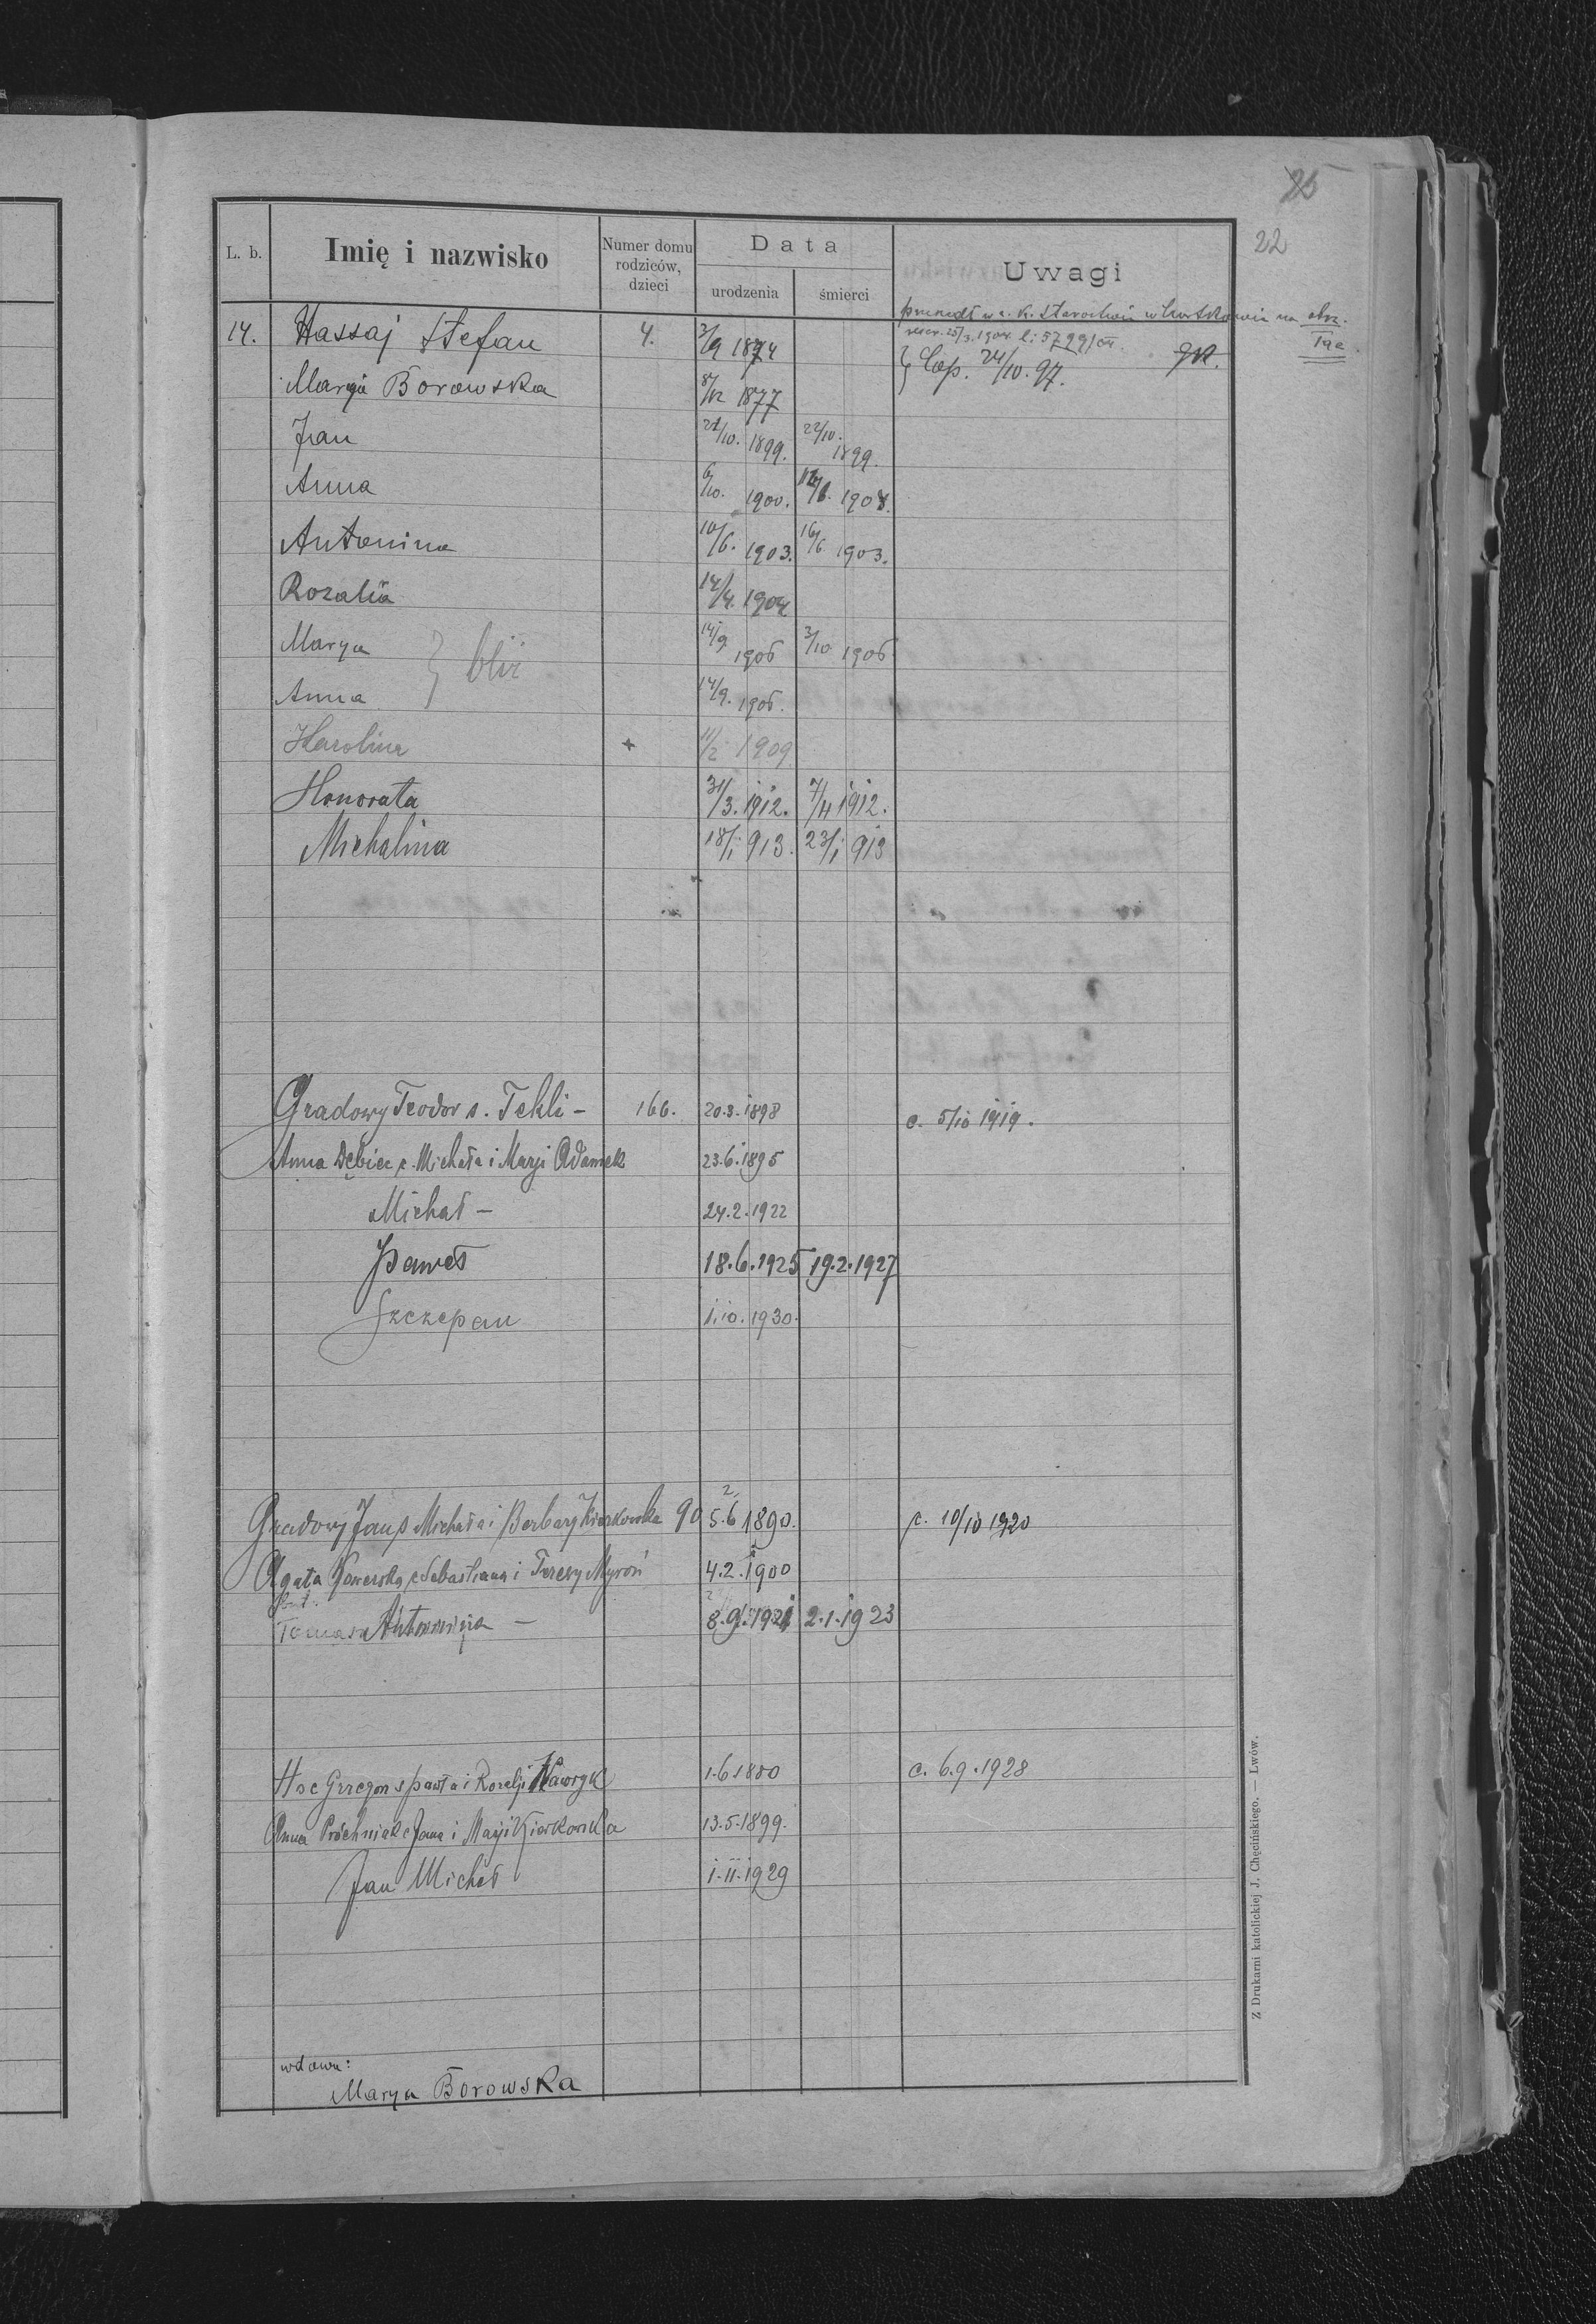 25
22
L. b. Imię i nazwisko Numer domu rodziców, dzieci Data urodzenia śmierci Uwagi
w c. k. Starostwie na obrz.
25/3. 1904 l: 5799/04. łac.
14. Hassaj Stefan 4. 3/9 1874 Cop. 24/10. 97. gk.
Marya Borowska 8/12 1877
Jan 22/10. 1899. 22/10. 1899.
Anna 6/10. 1900. 1908.
Antonina 10/6. 1903. 16/6 1903.
Rozalia 14/4. 1904
Marya 14/9 1906 3/10 1906
bliź
Anna 14/9. 1906.
Karolina + 11/2 1909
Honorata 31/3. 1912. 7/4 1912.
Michalina 18/1 913. 23/1 913
Gradowy Teodor s. Tekli - 166. 20.3.1898 c. 5/10 1919.
Anna Dębicz c. Michała i Marji Adamek 23.6.1895
Michał - 24.2.1922
Paweł 18.6.1925 19.2.1927
Szczepan 1.10.1930.
Gradowy Jan s Michała i Barbary Kiorkowska 90 5.6 1890. c. 10/10 1920
Agata c Sebastiana i Teresy Myroń 4.2.1900
Tomasz Antonina - 8.9.1921 2.1.1923
Hoc Grzegorz s Pawła i Rozalji Nawryk 1.6 1880 c. 6.9.1928
Anna Próchniak c Jana i Marji Kiorkowska 13.5.1899.
Jan Michał 1.11.1929
wdowa:
Marya Borowska
Z Drukarni katolickiej J. Chęcińskiego. — Lwów.